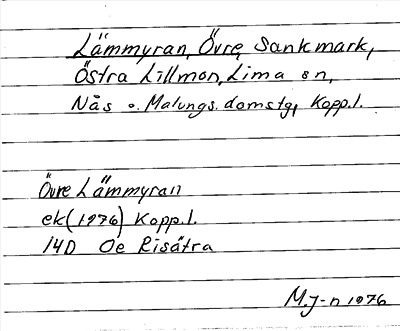 Lämmyran, Övre, Sankmark,
Östra Lillmon, Lima sn,
Nås o. Malungs. domstg, Kopp.l.
Övre Lämmyran
ek(1976) Kopp.l.
14D Oe Risätra
M.J-n 1976